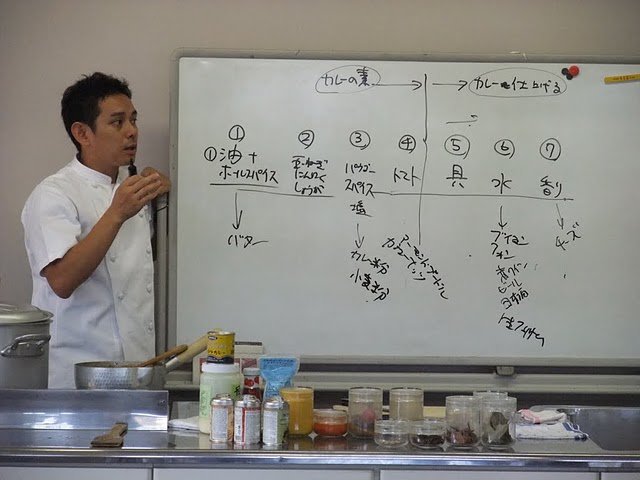 カレーの素
カレーを仕上げる
① ② ③ ④ ⑤ ⑥ ⑦
①油+
ホールスパイス
玉ねぎ
にんにく
しょうが
パウダー
スパイス
塩
トマト
具
水
香り
バター
カレー粉
小麦粉
アーモンドプードル
カシューナッツ
ブイヨン
赤ワイン
ビール
日本酒
チーズ